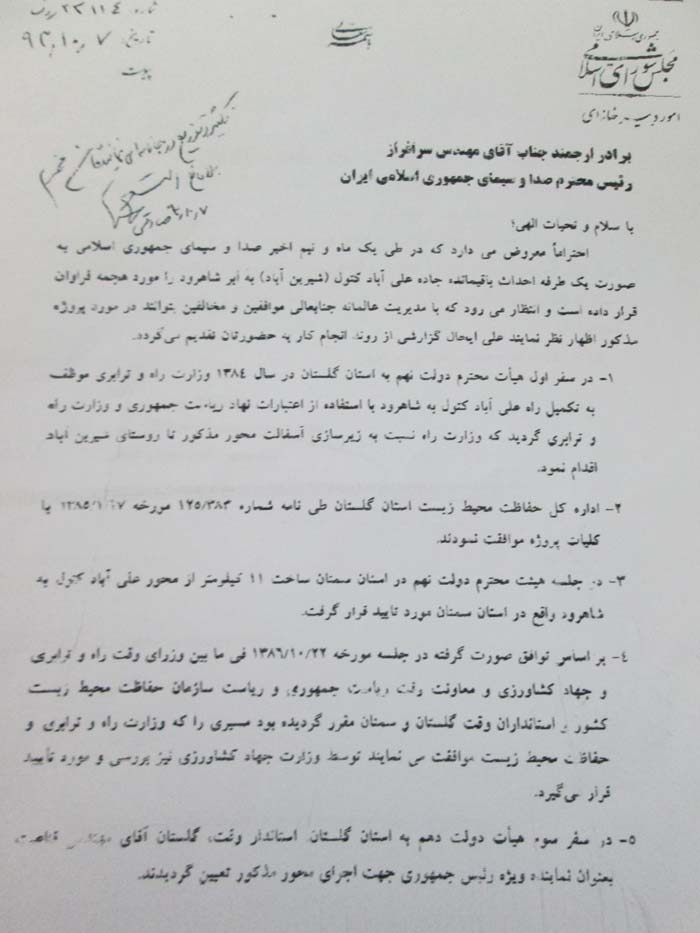 جمهوری اسلامی ایران
مجلس شورای اسلامی
شماره: ۲۲۱۱۴
تاریخ: ۹۳،۱۰،۷
پیوست
برادر ارجمند جناب آقای مهندس سرافراز
رئیس محترم صدا و سیمای جمهوری اسلامی ایران
با سلام و تحیات الهی؛
احتراماً معروض می دارد که در طی یک ماه و نیم اخیر صدا و سیمای جمهوری اسلامی به
صورت یک طرفه احداث باقیمانده جاده علی آباد کتول (شیرین آباد) به ابر شاهرود را مورد هجمه فراوان
قرار داده است و انتظار می رود که با مدیریت عالمانه جنابعالی موافقین و مخالفین بتوانند در مورد پروژه
مذکور اظهار نظر نمایند علی ایحال گزارشی از روند انجام کار به حضورتان تقدیم می‌گردد.
۱- در سفر اول هیأت محترم دولت نهم به استان گلستان در سال ۱۳۸۴ وزارت راه و ترابری موظف
به تکمیل راه علی آباد کتول به شاهرود با استفاده از اعتبارات نهاد ریاست جمهوری و وزارت راه
و ترابری گردید که وزارت راه نسبت به زیرسازی آسفالت محور مذکور تا روستای شیرین آباد
اقدام نمود.
۲- اداره کل حفاظت محیط زیست استان گلستان طی نامه شماره ۱۲۵/۳۸۳ مورخه با
کلیات پروژه موافقت نمودند.
۳- در جلسه هیئت محترم دولت نهم در استان سمنان ساخت ۱۱ کیلومتر از محور علی آباد کتول به
شاهرود واقع در استان سمنان مورد تایید قرار گرفت.
۴- بر اساس توافق صورت گرفته در جلسه مورخه ۱۳۸۶/۱۰/۲۲ فی ما بین وزرای وقت راه و ترابری
و جهاد کشاورزی و معاونت وقت ریاست جمهوری و ریاست سازمان حفاظت محیط زیست
کشور و استانداران وقت گلستان و سمنان مقرر گردیده بود مسیری را که وزارت راه و ترابری و
حفاظت محیط زیست موافقت می نمایند توسط وزارت جهاد کشاورزی نیز بررسی و مورد تأیید
قرار می‌گیرد.
۵- در سفر سوم هیأت دولت دهم به استان گلستان، استاندار وقت، گلستان آقای مهندس
بعنوان نماینده ویژه رئیس جمهوری جهت اجرای محور مذکور تعیین گردیدند.